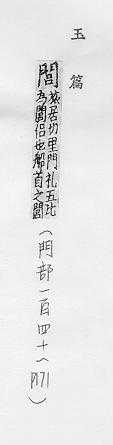 玉篇
閭 旅居切里門礼五比
為閭侶也船首之閭
(門部一百四十一 P171)